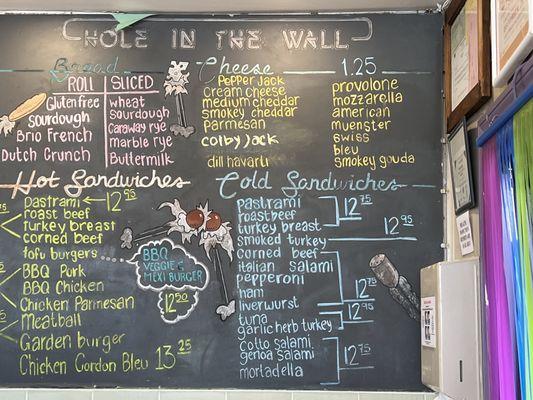 HOLE IN THE WALL
Bread
ROLL SLICED
Gluten free
sourdough
Brio French
Dutch Crunch
wheat
sourdough
Caraway rye
marble rye
Buttermilk
Cheese 1.25
Pepper Jack
Cream cheese
medium cheddar
smokey cheddar
parmesan
colby jack
dill havarti
provolone
mozzarella
american
muenster
swiss
bleu
smokey gouda
Hot Sandwiches
Pastrami 12.95
roast beef
turkey breast
corned beef
tofu burgers
BBQ Pork
BBQ Chicken
Chicken Parmesan
Meatball
Garden burger
Chicken Gordon Bleu 13.25
BBQ
VEGGIE &
MEXI BURGER
12.50
Cold Sandwiches
pastrami
roastbeef
turkey breast
12.75
smoked turkey 12.95
corned beef
italian salami
pepperoni
ham
liverwurst
12.75
tuna
garlic herb turkey
12.75
cotto salami
genoa salami
mortadella
12.75